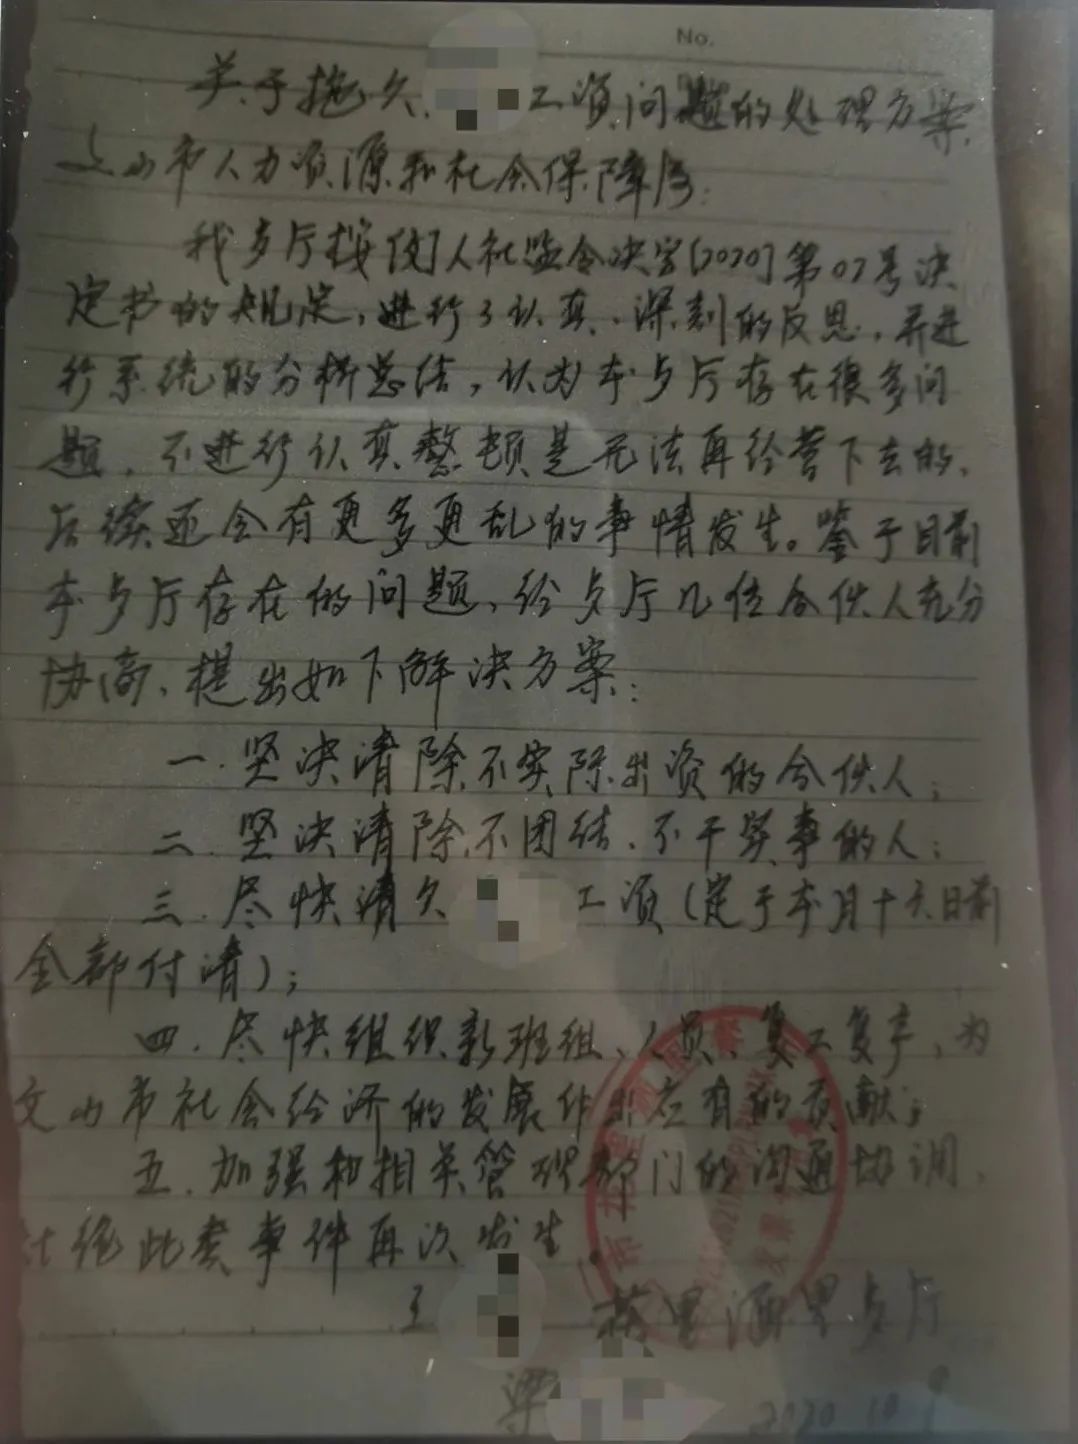 No.
关于拖欠 工资问题的处理方案
文山市人力资源和社会保障局:
我乡厅按 人社监令决字[2020]第07号决
定书的规定,进行了认真、深刻的反思,并进
行系统的分析总结,认为本乡厅存在很多问
题,不进行认真整顿是无法再经营下去的,
后续还会有更多更乱的事情发生。鉴于目前
本乡厅存在的问题,经乡厅几位合伙人充分
协商,提出如下解决方案:
一.坚决清除不实际出资的合伙人;
二.坚决清除不团结、不干实事的人;
三.尽快清欠 工资(定于本月十六日前
全部付清);
四.尽快组织新班组、人员、复工复产,为
文山市社会经济的发展作出应有的贡献;
五.加强和相关管理部门的沟通协调,
杜绝此类事件再次发生。
王 酒里乡厅
梁 2020 10 9